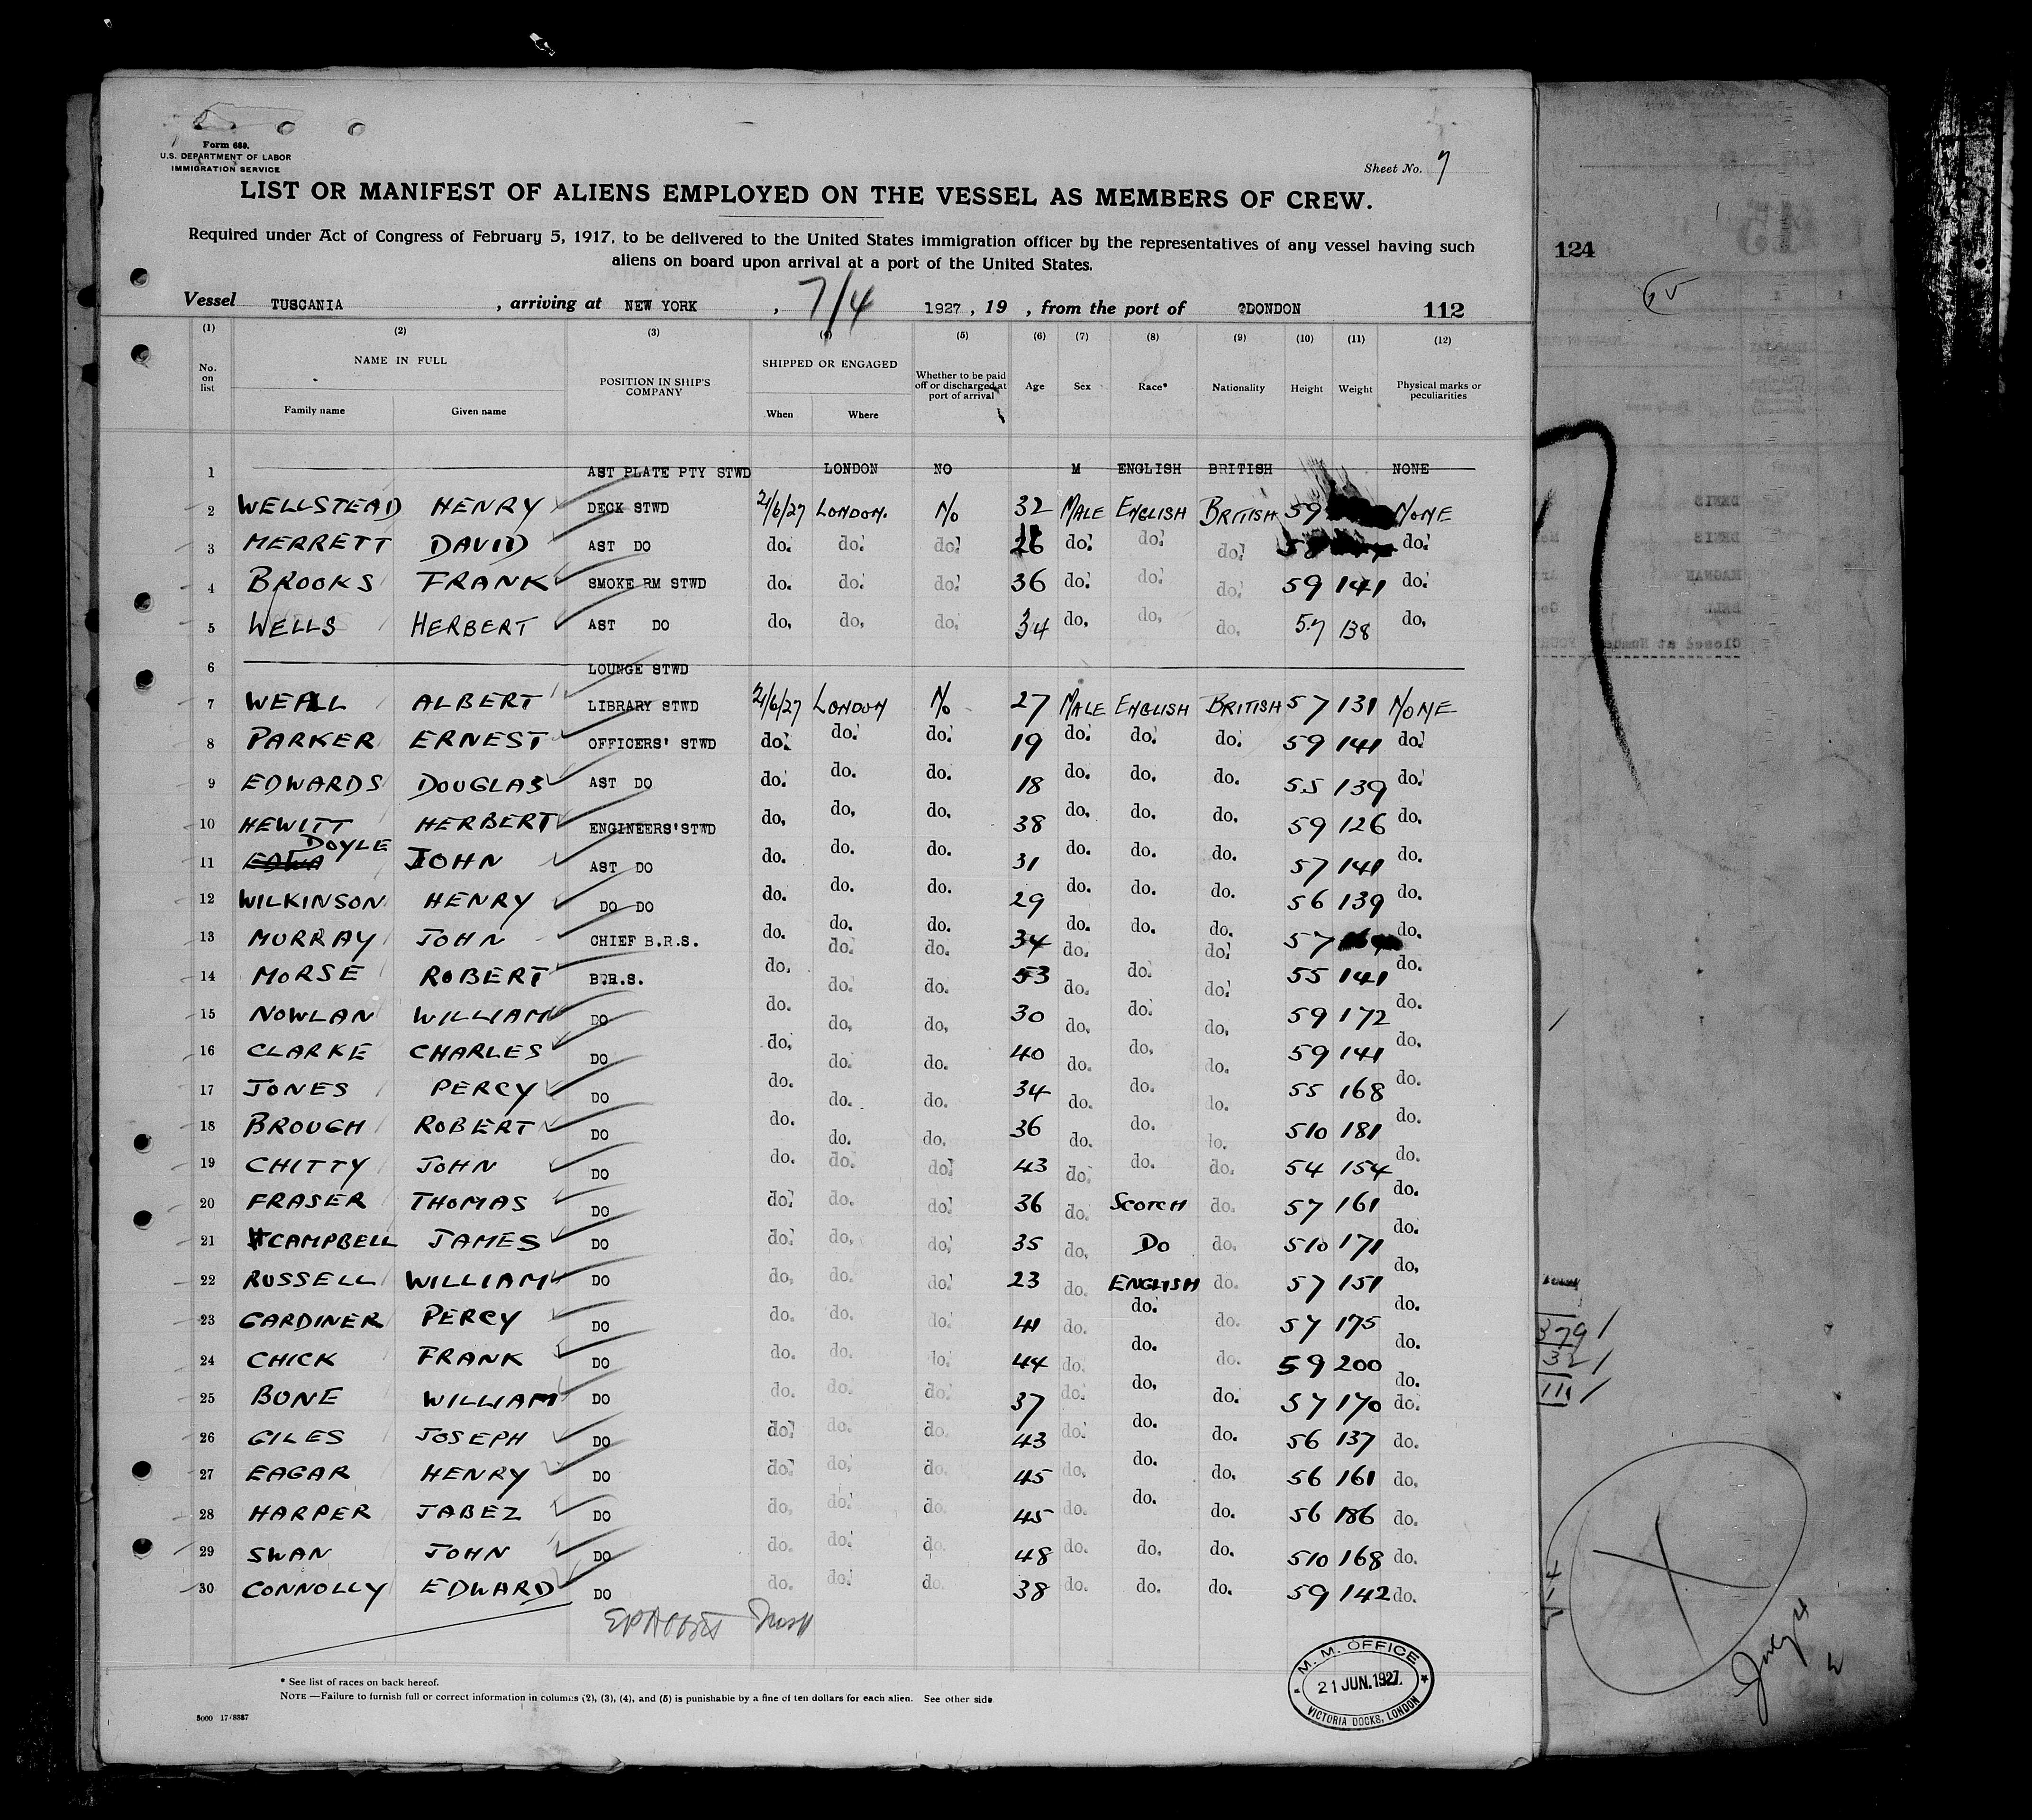 Form 689.
U.S. DEPARTMENT OF LABOR
IMMIGRATION SERVICE
Sheet No. 7
LIST OR MANIFEST OF ALIENS EMPLOYED ON THE VESSEL AS MEMBERS OF CREW.
Required under Act of Congress of February 5, 1917, to be delivered to the United States immigration officer by the representatives of any vessel having such
aliens on board upon arrival at a port of the United States.
Vessel TUSCANIA , arriving at NEW YORK , 7/4 1927 , 19 , from the port of LONDON 112
(1) (2) (3) (4) (5) (6) (7) (8) (9) (10) (11) (12)
No. on list NAME IN FULL Family name Given name POSITION IN SHIP'S COMPANY SHIPPED OR ENGAGED When Where Whether to be paid off or discharged at port of arrival Age Sex Race* Nationality Height Weight Physical marks or peculiarities
1 AST PLATE PTY STWD LONDON NO M ENGLISH BRITISH NONE
2 WELLSTEAD HENRY DECK STWD 21/6/27 LONDON. No 32 MALE ENGLISH BRITISH 59 NONE
3 MERRETT DAVID AST DO do. do. do. 26 do. do. do. 58 do.
4 BROOKS FRANK SMOKE RM STWD do. do. do. 36 do. do. do. 59 141 do.
5 WELLS HERBERT AST DO do. do. do. 34 do. do. do. 57 138 do.
6 LOUNGE STWD
7 WEALL ALBERT LIBRARY STWD 21/6/27 LONDON No 27 MALE ENGLISH BRITISH 57 131 NONE
8 PARKER ERNEST OFFICERS' STWD do. do. do. 19 do. do. do. 59 141 do.
9 EDWARDS DOUGLAS AST DO do. do. do. 18 do. do. do. 55 139 do.
10 HEWITT HERBERT ENGINEERS'STWD do. do. do. 38 do. do. do. 59 126 do.
11 EDWA DOYLE JOHN AST DO do. do. do. 31 do. do. do. 57 141 do.
12 WILKINSON HENRY DO DO do. do. do. 29 do. do. do. 56 139 do.
13 MURRAY JOHN CHIEF B.R.S. do. do. do. 34 do. do. do. 57 do.
14 MORSE ROBERT B.R.S. do. do. do. 53 do. do. do. 55 141 do.
15 NOWLAN WILLIAM DO do. do. do. 30 do. do. do. 59 172 do.
16 CLARKE CHARLES DO do. do. do. 40 do. do. do. 59 141 do.
17 JONES PERCY DO do. do. do. 34 do. do. do. 55 168 do.
18 BROUGH ROBERT DO do. do. do. 36 do. do. do. 510 181 do.
19 CHITTY JOHN DO do. do. do. 43 do. do. do. 54 154 do.
20 FRASER THOMAS DO do. do. do. 36 do. SCOTCH do. 57 161 do.
21 CAMPBELL JAMES DO do. do. do. 35 do. DO do. 510 171 do.
22 RUSSELL WILLIAM DO do. do. do. 23 do. ENGLISH do. 57 151 do.
23 GARDINER PERCY DO do. do. do. 41 do. do. do. 57 175 do.
24 CHICK FRANK DO do. do. do. 44 do. do. do. 59 200 do.
25 BONE WILLIAM DO do. do. do. 37 do. do. do. 57 170 do.
26 GILES JOSEPH DO do. do. do. 43 do. do. do. 56 137 do.
27 EAGAR HENRY DO do. do. do. 45 do. do. do. 56 161 do.
28 HARPER JABEZ DO do. do. do. 45 do. do. do. 56 186 do.
29 SWAN JOHN DO do. do. do. 48 do. do. do. 510 168 do.
30 CONNOLLY EDWARD DO do. do. do. 38 do. do. do. 59 142 do.
* See list of races on back hereof.
NOTE.—Failure to furnish full or correct information in columns (2), (3), (4), and (5) is punishable by a fine of ten dollars for each alien. See other side.
M. M. OFFICE
21 JUN. 1927.
VICTORIA DOCKS, LONDON
124
379
32
111
July 4